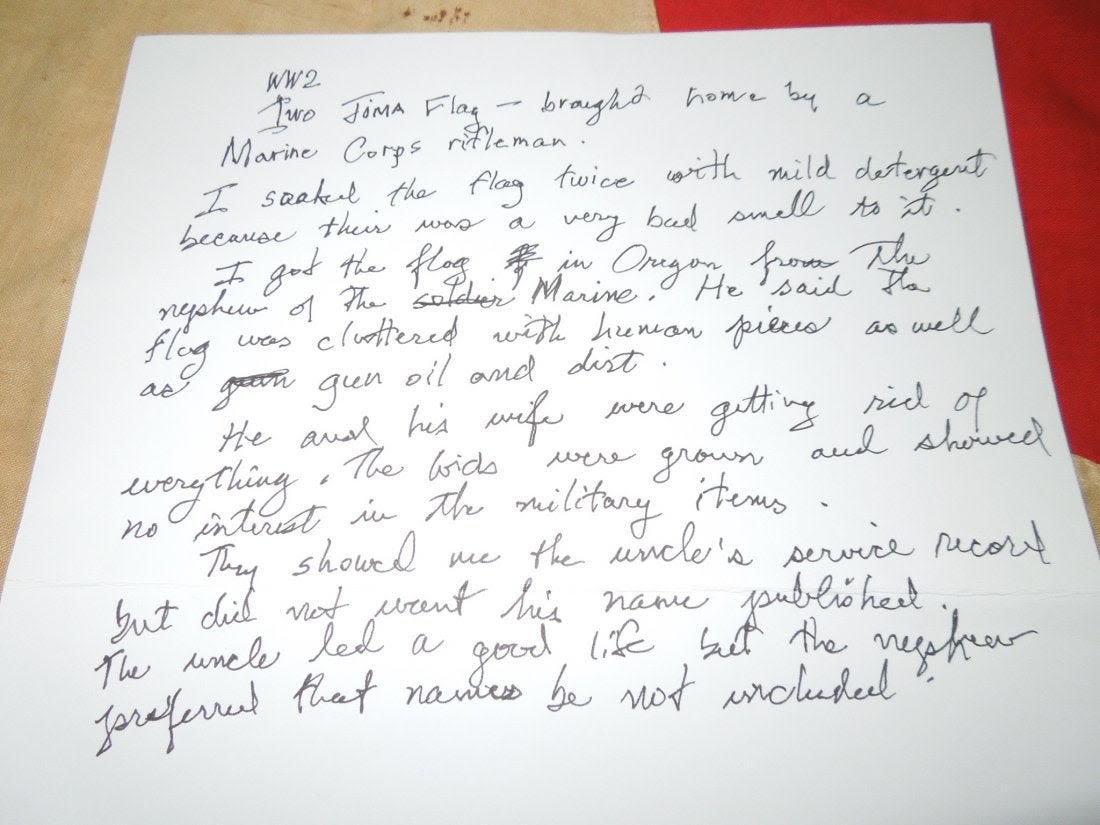 WW2
Iwo JIMA Flag — brought home by a
Marine Corps rifleman.
I soaked the flag twice with mild detergent
because their was a very bad smell to it.
I got the flag in Oregon from The
nephew of The soldier Marine. He said the
flag was cluttered with human pieces as well
as gun gun oil and dirt.
He and his wife were getting rid of
everything. The kids were grown and showed
no interest in the military items.
They showed me the uncle's service record
but did not want his name published.
The uncle led a good life but the nephew
preferred that names be not included.